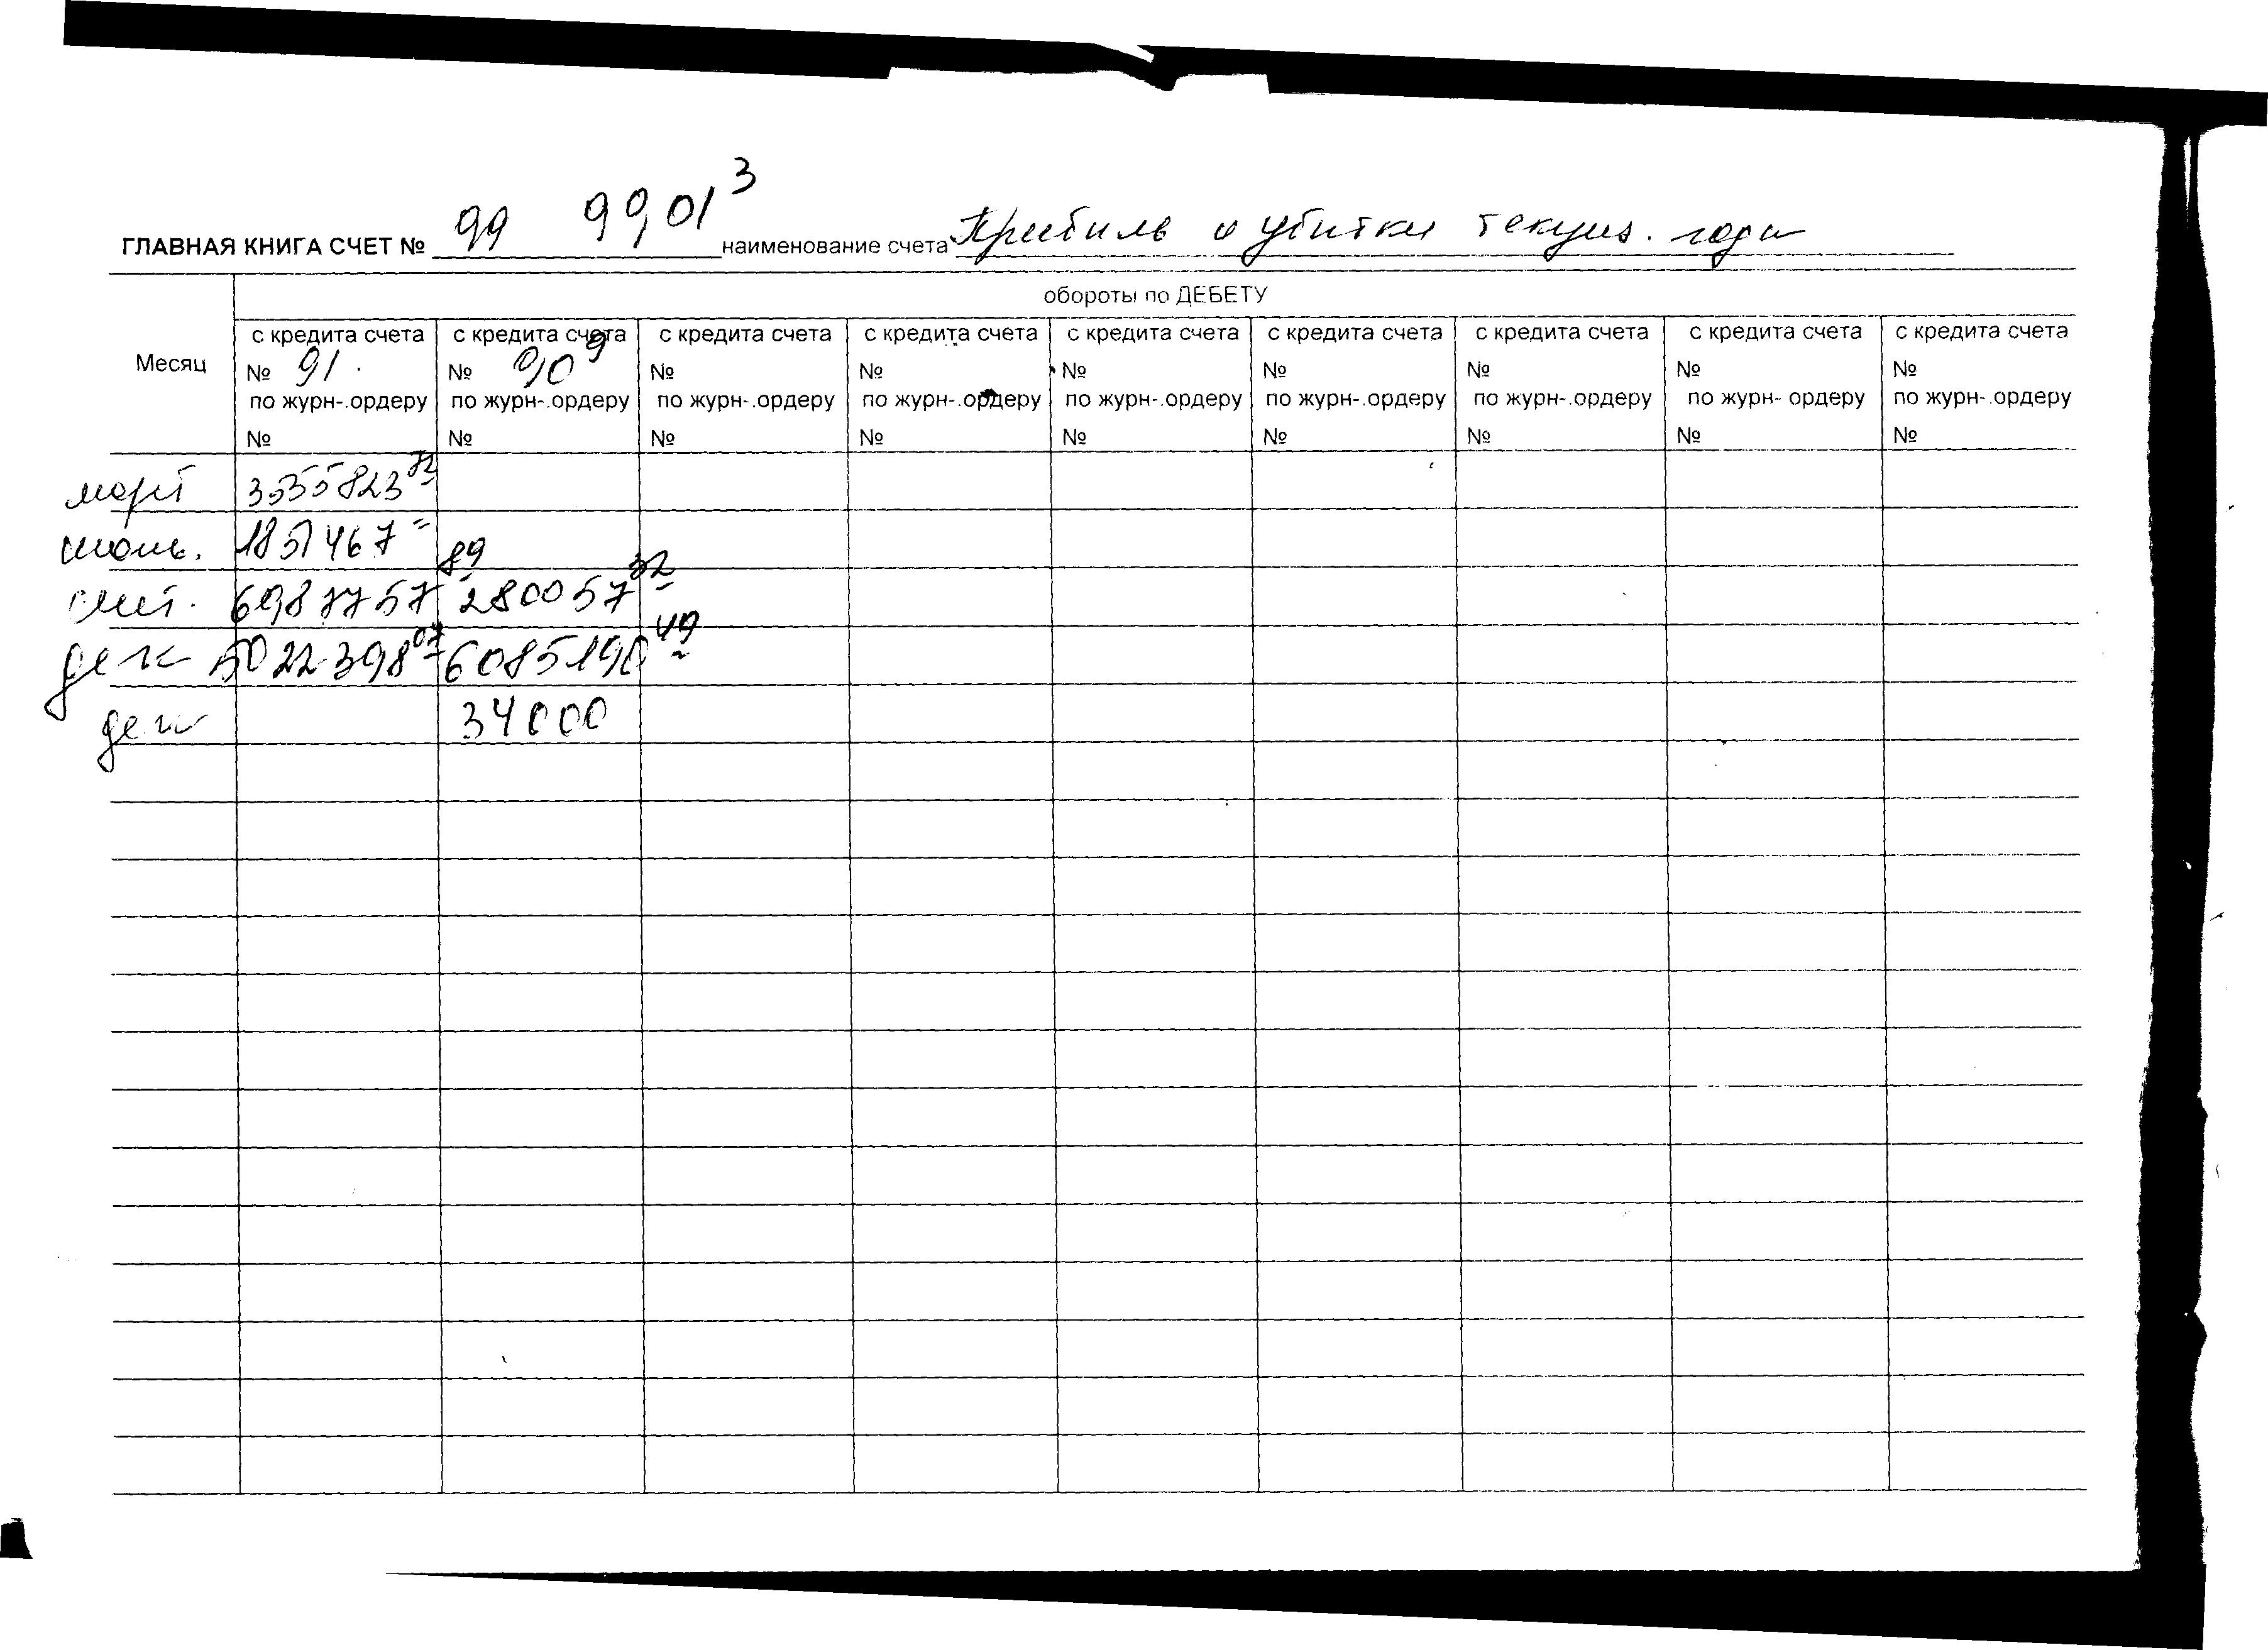 ГЛАВНАЯ КНИГА СЧЕТ № 99 9901 3 наименование счета Прибыль и убытки текущ. года
обороты по ДЕБЕТУ
Месяц
с кредита счета с кредита счета с кредита счета с кредита счета с кредита счета с кредита счета с кредита счета с кредита счета с кредита счета
№ 91. № 90 9 № № № № № № №
по журн-.ордеру по журн-.ордеру по журн-.ордеру по журн-.ордеру по журн-.ордеру по журн-.ордеру по журн-.ордеру по журн- ордеру по журн-.ордеру
№ № № № № № № № №
март 3535823
июнь. 1851467 =
сент. 6987757 89 280057 32
дек 5022398 07 6085190 49
дек 34000